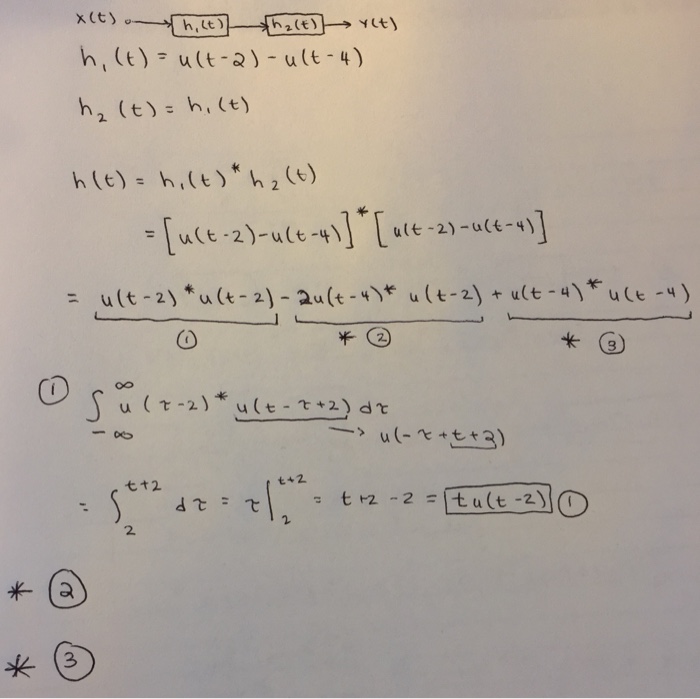 x(t) → h₁(t) → h₂(t) → Y(t)
h₁(t) = u(t-2) - u(t-4)
h₂(t) = h₁(t)
h(t) = h₁(t) * h₂(t)
= [u(t-2)-u(t-4)] * [u(t-2)-u(t-4)]
= u(t-2) * u(t-2) - 2u(t-4) * u(t-2) + u(t-4) * u(t-4)
① * ② * ③
① ∫_{-∞}^{∞} u(τ-2) * u(t-τ+2) dτ
→ u(-τ+t+2)
= ∫_2^{t+2} dτ = τ|_2^{t+2} = t+2-2 = tu(t-2) ①
* ②
* ③